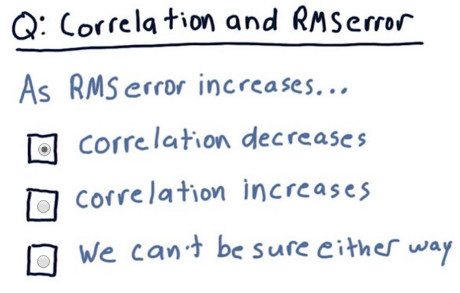 Q: Correlation and RMS error
As RMS error increases...
correlation decreases
correlation increases
We can't be sure either way